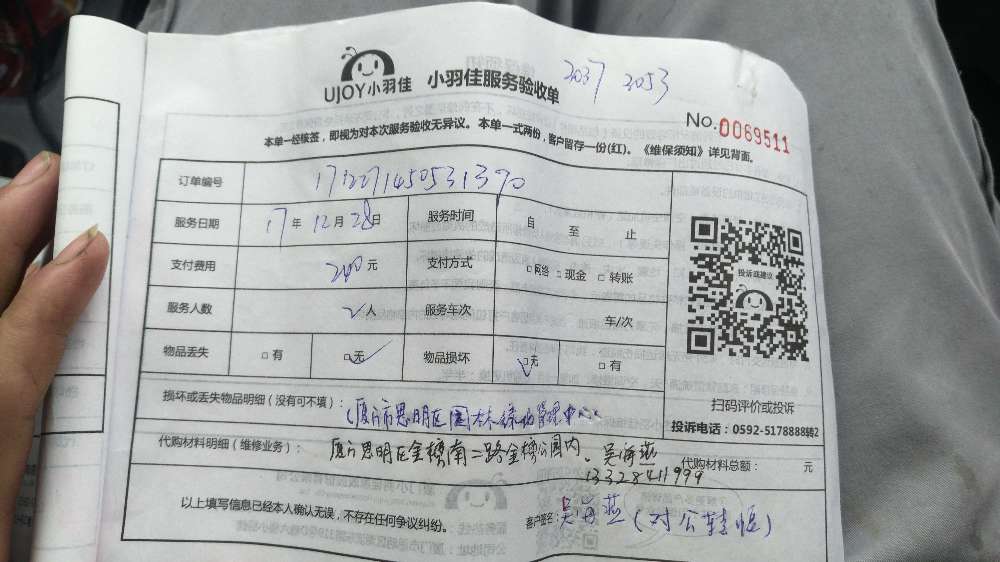 UJOY小羽佳 小羽佳服务验收单 2037 2053
No.0069511
本单一经核签，即视为对本次服务验收无异议。本单一式两份，客户留存一份(红)。《维保须知》详见背面。
订单编号 1712271450531370
服务日期 17年12月28日 服务时间 自 至 止
支付费用 200元 支付方式 □网络 □现金 □转账
服务人数 2人 服务车次 车/次
物品丢失 □有 □无 物品损坏 □无 □有
投诉或建议
扫码评价或投诉
投诉电话：0592-5178888转2
损坏或丢失物品明细（没有可不填）：
(厦门市思明区园林绿化管理中心)
代购材料明细（维修业务）： 厦门思明区金榜南二路金榜公园内. 吴海燕 代购材料总额： 元
13328411999
以上填写信息已经本人确认无误，不存在任何争议纠纷。 客户签名：吴海燕(对公转账)